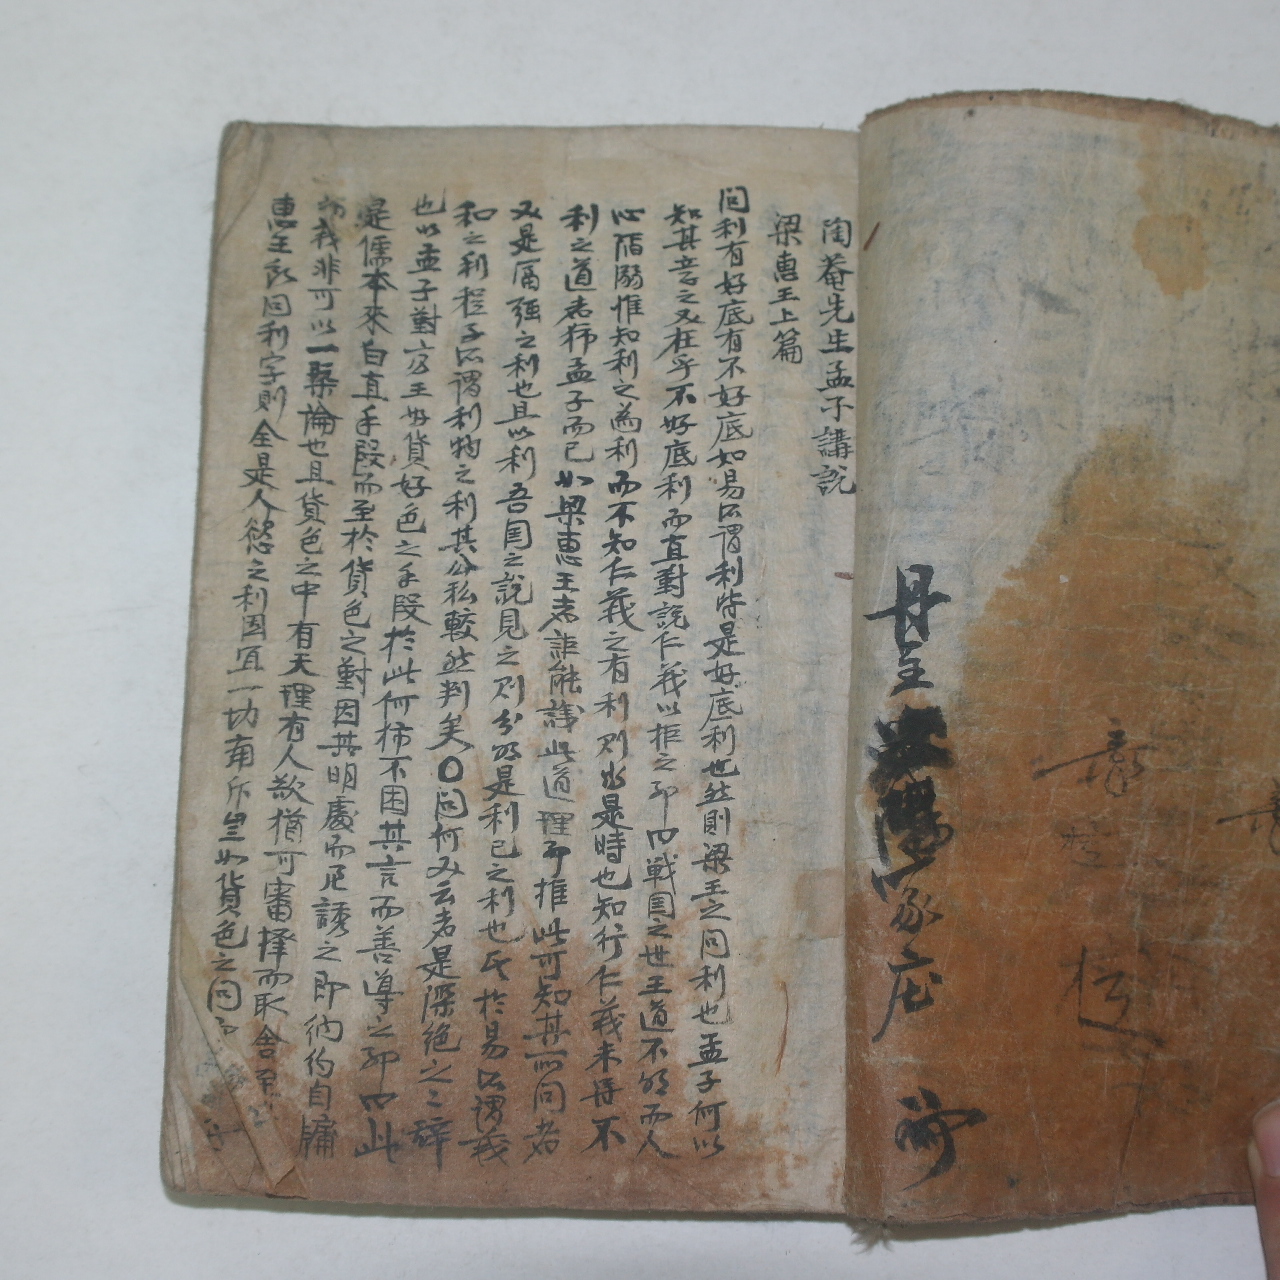 丹
豕
陶菴先生孟子講說
梁惠王上篇
問利有好底有不好底如易所謂利皆是好底利也然則梁王之問利也孟子何以
知其音之必在乎不好底利而直對說仁義以拒之耶曰戰國之世王道不明而人
心陷溺惟知利之爲利而不知仁義之有利則當是時也知行仁義未甞不
利之道者獨孟子而已如梁惠王者詎能識此道理耶推此可知其所問者
必是富强之利也且以利吾國之說見之則分明是利己之利也氏於易所謂義
和之利程子所謂利物之利其公私較然判矣○問何必云者是深絶之之辞
也以孟子對宣王好貨好色之手段於此何特不因其言而善導之耶曰此
是儒本來白直手段而至於貨色之對因其明處而誘之即納約自牖
義非可以一槩論也且貨色之中有天理有人欲猶可審擇而取舍
惠王所問利字則全是人慾之利固宜一切痛斥豈如貨色之問